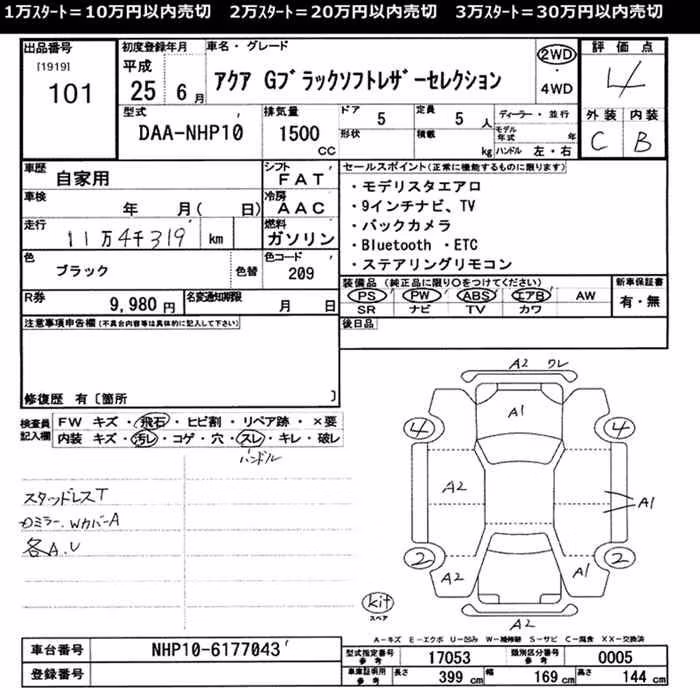 1万ｽﾀｰﾄ＝10万円以内売切　2万ｽﾀｰﾄ＝20万円以内売切　3万ｽﾀｰﾄ＝30万円以内売切
出品番号 [1919] 101
初度登録年月 平成 25 年 6 月
車名・グレード アクア Gﾌﾞラックソフトレｻﾞーセレクション
2WD ・ 4WD
評価点 4
外装 C 内装 B
型式 DAA-NHP10
排気量 1500 CC
ドア 5 形状
定員 5 人 積載 kg
ディーラー・並行
モデル年式 年
ハンドル 左・右
車歴 自家用
シフト FAT
車検 年 月( 日)
冷房 AAC
走行 11万4千319 km
燃料 ガソリン
色 ブラック 色替
色コード 209
R券 9,980 円
名変通知期限 月 日
セールスポイント(正常に機能するものに限ります)
・モデリスタエアロ
・9インチナビ、TV
・バックカメラ
・Bluetooth ・ETC
・ステアリングリモコン
装備品 (純正品に限り○をつけてください)
PS PW ABS エアB AW
SR ナビ TV カワ
新車保証書 有・無
後日品
注意事項申告欄(不具合内容等は具体的に記入して下さい)
修復歴 有〔箇所 〕
検査員記入欄
FW キズ・飛石・ヒビ割・リペア跡・×要
内装 キズ・汚レ・コゲ・穴・スレ・キレ・破レ
ハンドル
スタッドレスT
ミラー.WカバーA
各A.U
A2 ワレ
A1
4 4
A2
A1
2 2
A2 A1
A2
kit
スペア
A－キズ E－エクボ U－凹み W－補修跡 S－サビ C－腐食 XX－交換済
車台番号 NHP10-6177043
登録番号
型式指定番号 参考 17053
類別区分番号 参考 0005
車庫証明用 参考 長さ 399 cm 幅 169 cm 高さ 144 cm